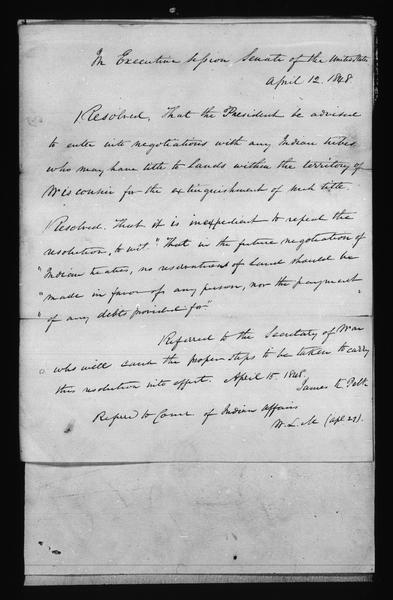 In Executive session Senate of the United States
April 12. 1848.
Resolved, That the President be advised
to enter into negotiations with any Indian tribes
who may have title to lands within the territory of
Wisconsin for the extinguishment of such title.
Resolved. That it is inexpedient to repeal the
resolution, to wit. "That in the future negotiation of
"Indian treaties, no reservations of land should be
"made in favor of any person, nor the payment
"of any debts provided for"
Referred to the Secretary of War
who will cause the proper steps to be taken to carry
this resolution into effect. April 15. 1848.
James K. Polk
Refered to Comr of Indian Affairs
W. L. M (apl 27).